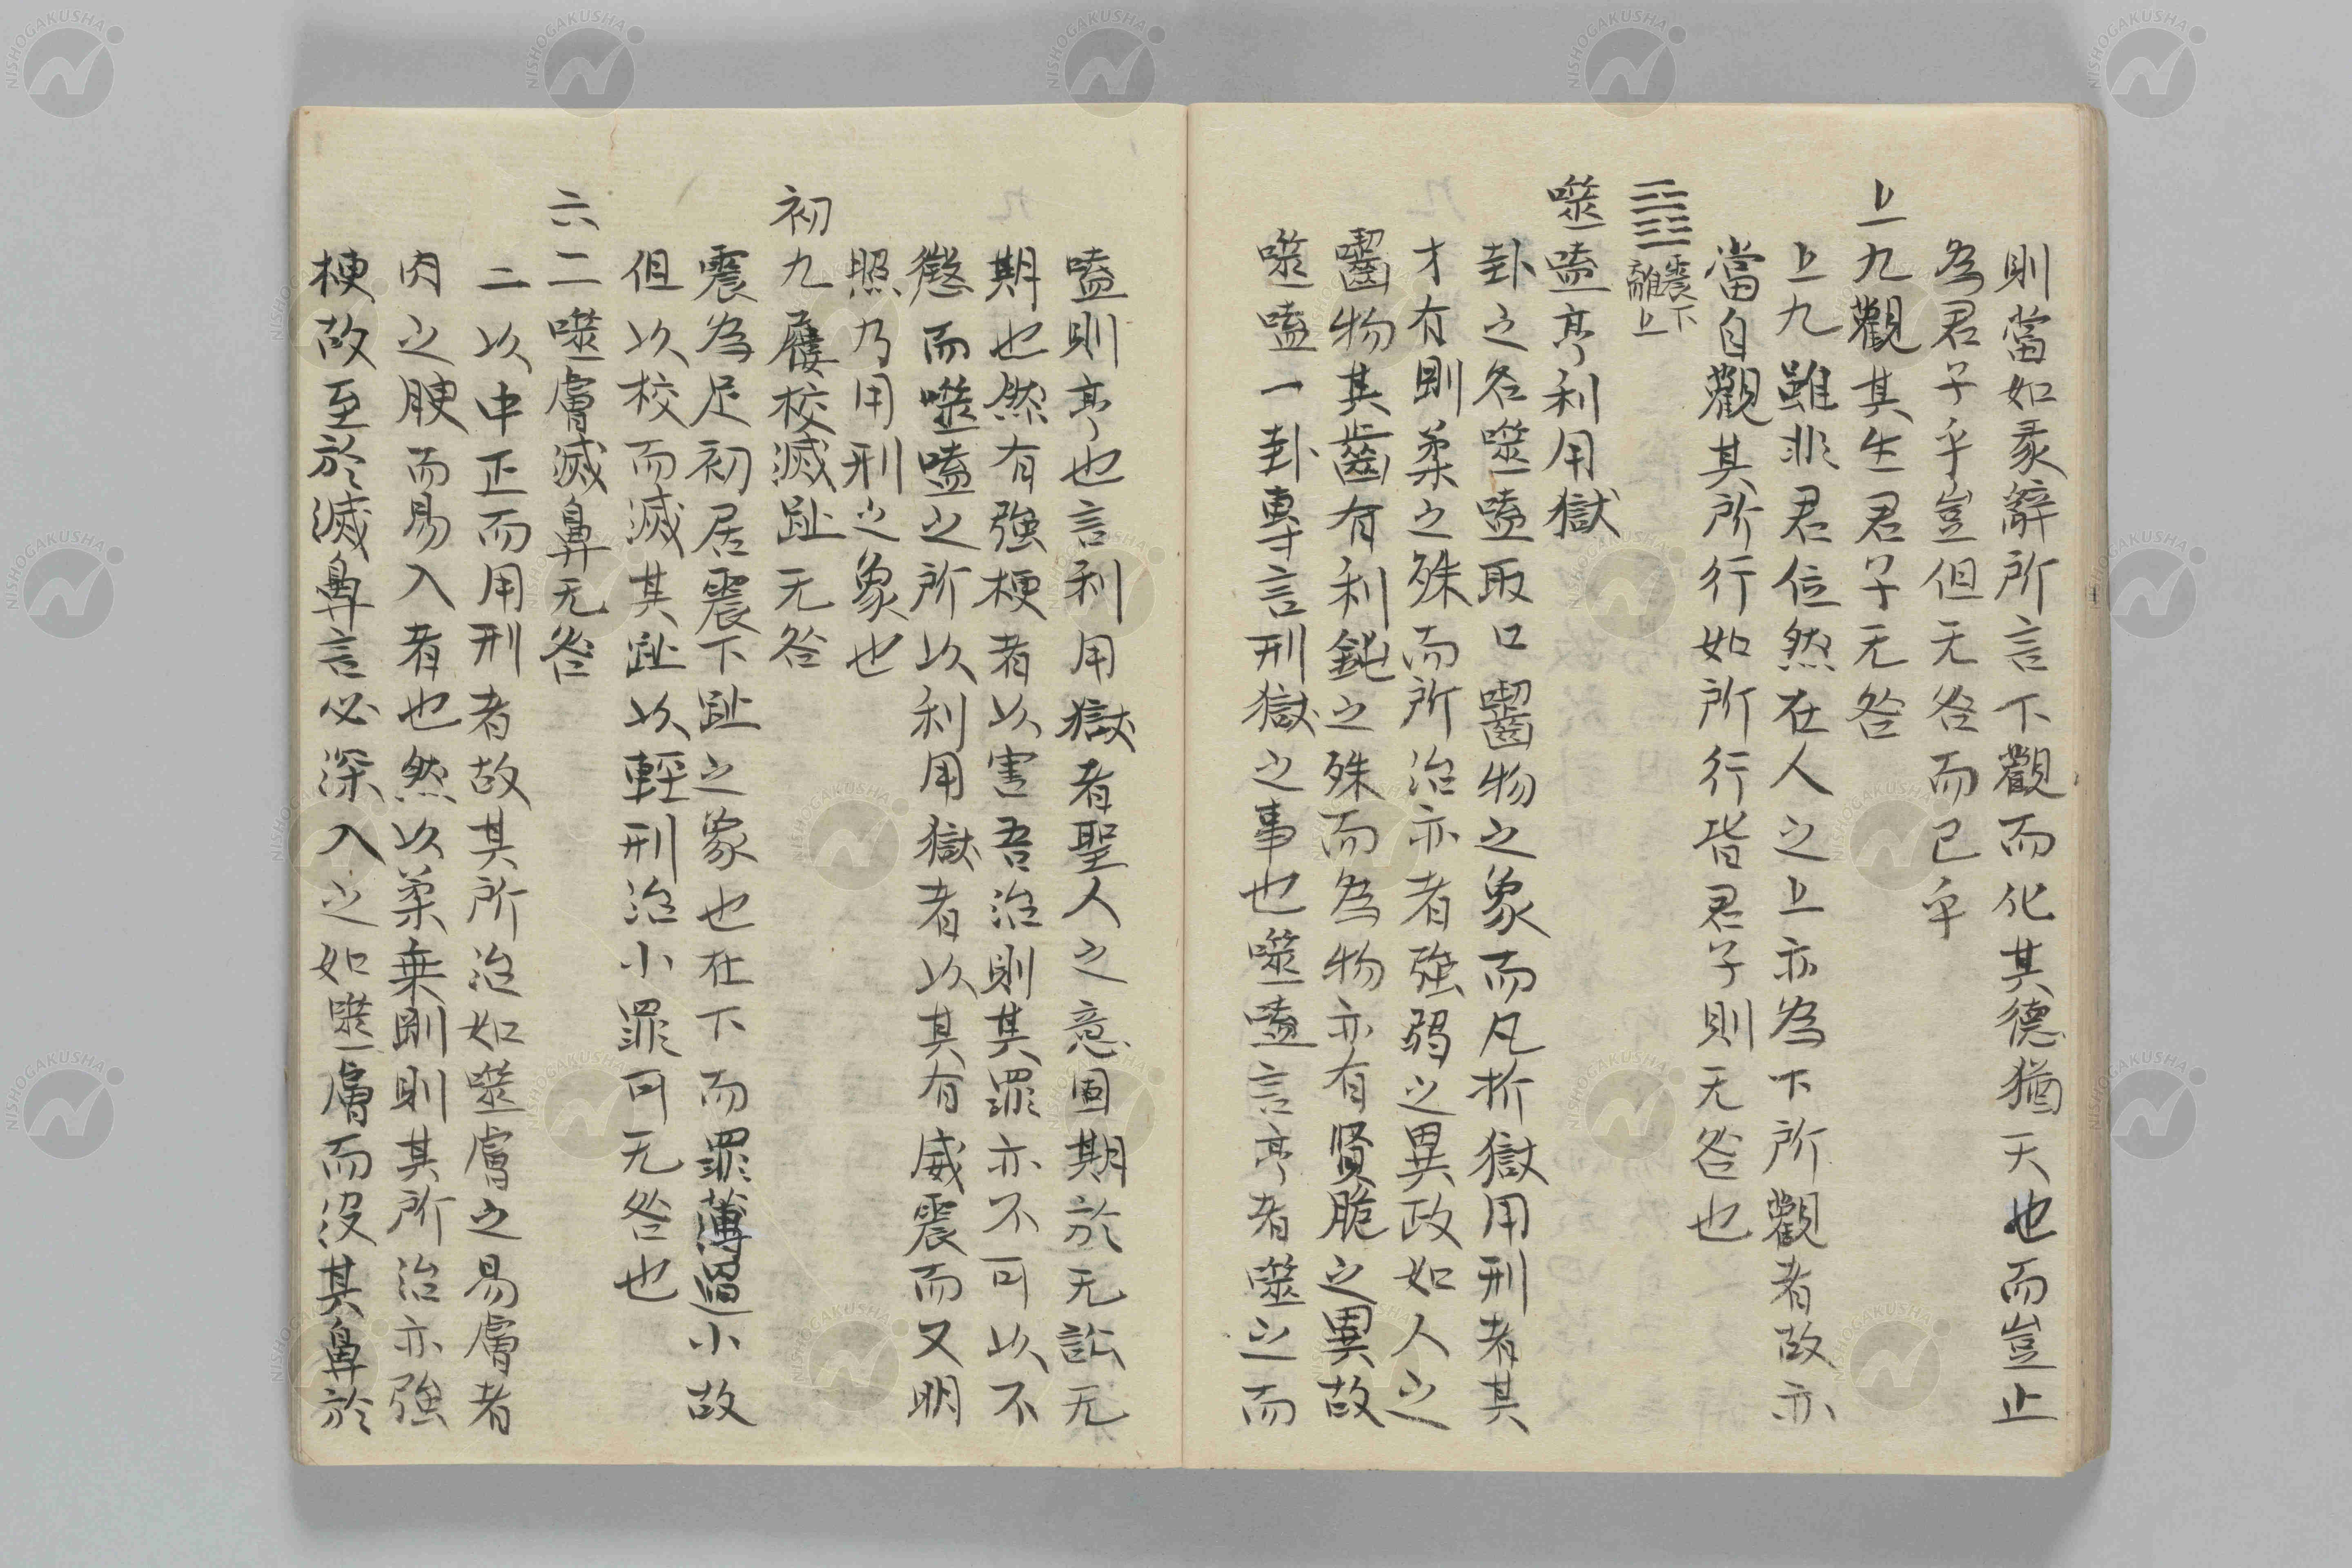 則當如彖辭所言下觀而化其德猶天也而豈止
為君子乎豈但无咎而已乎
上九觀其生君子无咎
上九雖非君位然在人之上亦為下所觀者故亦
當自觀其所行如所行皆君子則无咎也
䷔震下離上
噬嗑亨利用獄
卦之名噬嗑取口齧物之象而凡折獄用刑者其
才有剛柔之殊而所治亦者強弱之異政如人之
齧物其齒有利鈍之殊而為物亦有堅脆之異故
噬嗑一卦專言刑獄之事也噬嗑言亨者噬之而
嗑則亨也言利用獄者聖人之意固期於无訟无
期也然有強梗者以害吾治則其罪亦不可以不
懲而噬嗑之所以利用獄者以其有威震而又明
照乃用刑之象也
初九屨校滅趾无咎
震為足初居震下趾之象也在下而罪薄過小故
但以校而滅其趾以輕刑治小罪可无咎也
六二噬膚滅鼻无咎
二以中正而用刑者故其所治如噬膚之易膚者
肉之腴而易入者也然以柔乗剛則其所治亦強
梗故至於滅鼻言必深入之如噬膚而没其鼻於
NISHOGAKUSHA